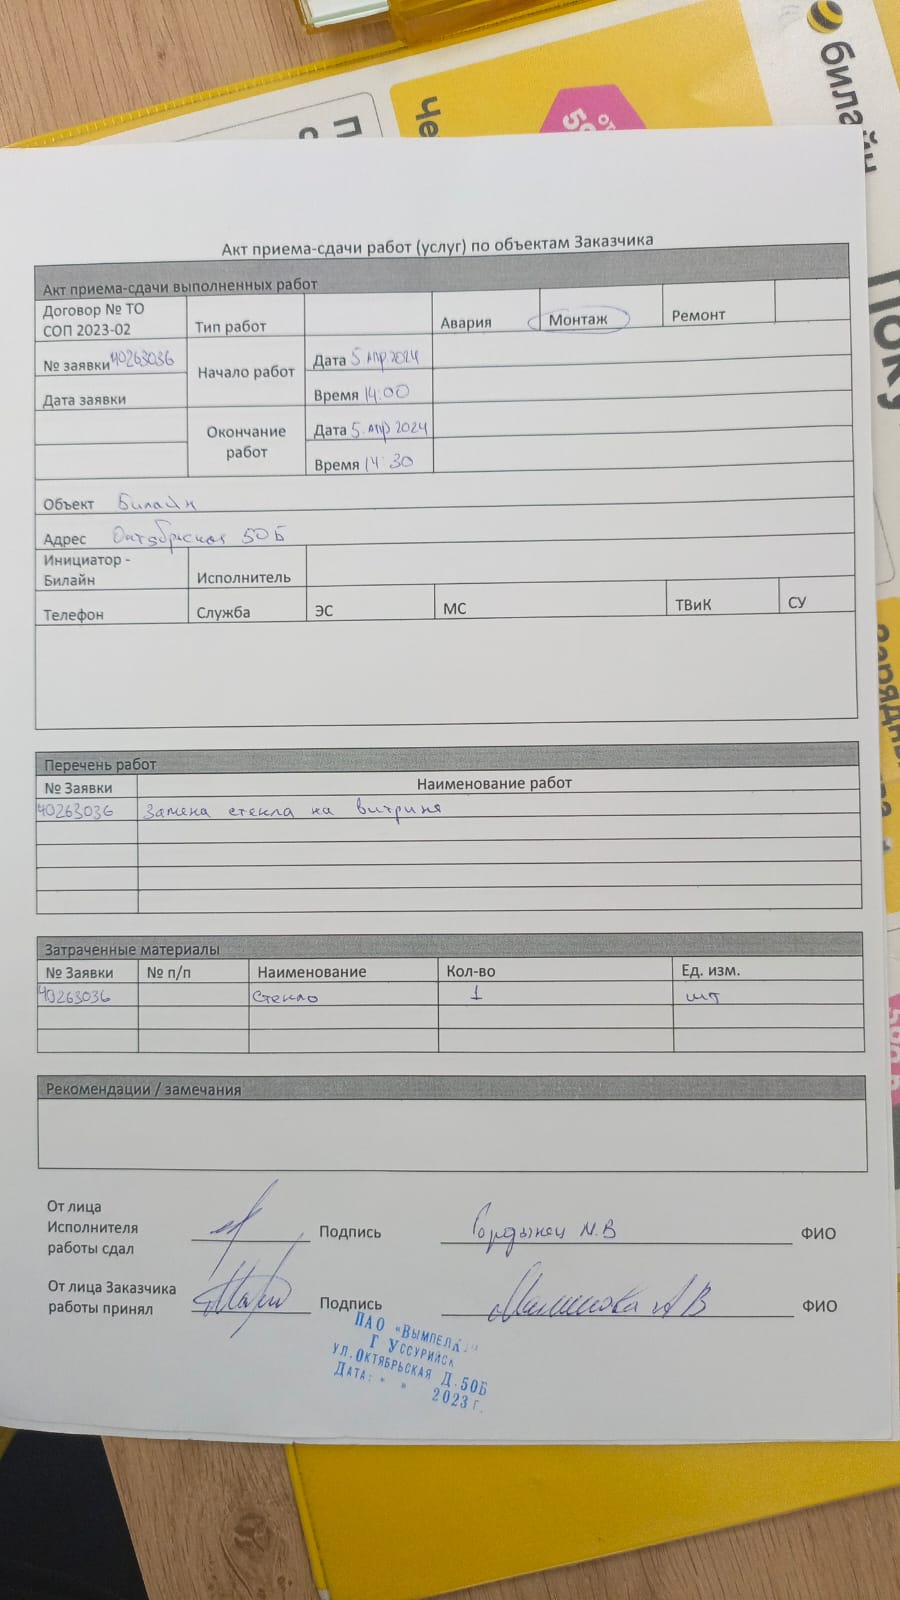 билайн
Че
от
Акт приема-сдачи работ (услуг) по объектам Заказчика
Акт приема-сдачи выполненных работ
Договор № ТО
СОП 2023-02
Тип работ
Авария
Монтаж
Ремонт
№ заявки 40263036
Начало работ
Дата 5 апр 2024
Дата заявки
Время 14:00
Окончание
работ
Дата 5. апр 2024
Время 14:30
Объект Билайн
Адрес Октябрьская 50Б
Инициатор -
Билайн
Исполнитель
Телефон
Служба
ЭС
МС
ТВиК
СУ
Перечень работ
№ Заявки
Наименование работ
40263036 Замена стекла на витрине
Затраченные материалы
№ Заявки № п/п Наименование Кол-во Ед. изм.
40263036 стекло 1 шт
Рекомендации / замечания
От лица
Исполнителя
работы сдал
Подпись
М.В
ФИО
От лица Заказчика
работы принял
Подпись
А В
ФИО
ПАО «Вымпел
Г Уссурийск
ул.Октябрьская Д.50Б
Дата: « » 2023 г.